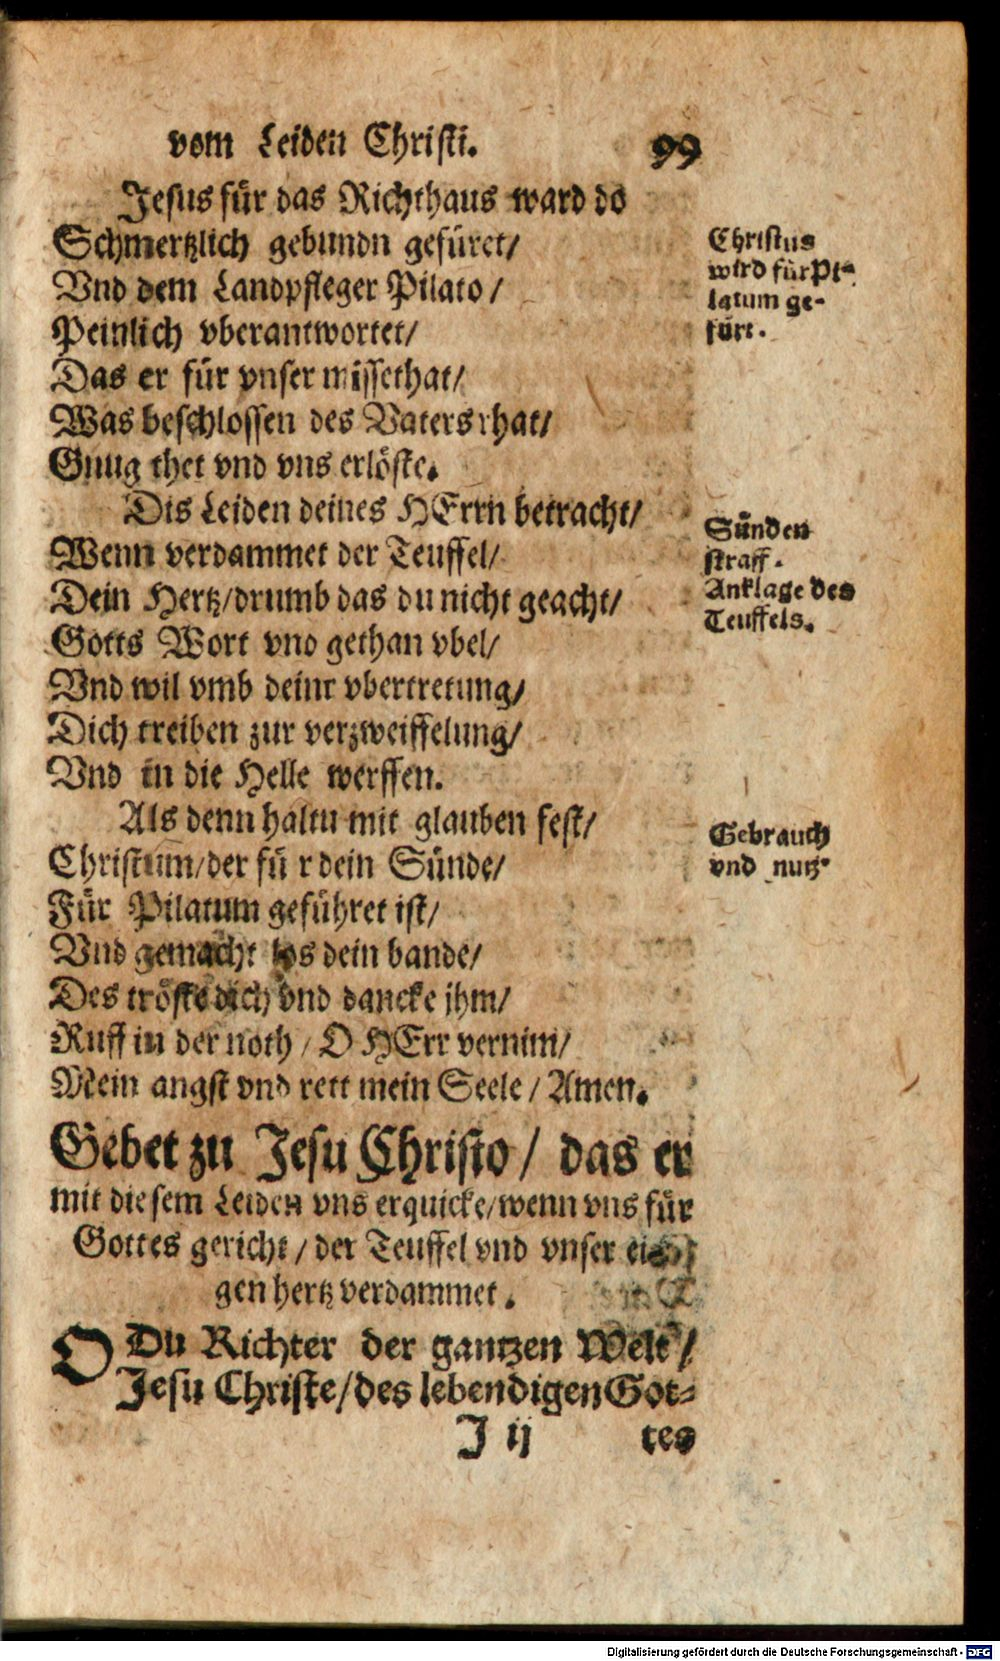 vom Leiden Christi. 99
Jesus für das Richthaus ward do
Schmertzlich gebundn gefüret/
Vnd dem Landpfleger Pilato /
Peinlich vberantwortet/
Das er für vnser missethat/
Was beschlossen des Vaters rhat/
Gnug thet vnd vns erlöste.
Christus
wird für Pi-
latum ge-
fürt.
Dis Leiden deines HErrn betracht/
Wenn verdammet der Teuffel/
Dein Hertz/drumb das du nicht geacht/
Gotts Wort vnd gethan vbel/
Vnd wil vmb deinr vbertretung/
Dich treiben zur verzweiffelung/
Vnd in die Helle werffen.
Sünden
straff.
Anklage des
Teuffels.
Als denn haltu mit glauben fest/
Christum/der fü r dein Sünde/
Für Pilatum geführet ist/
Vnd gemacht los dein bande/
Des tröste dich vnd dancke jhm/
Ruff in der noth / O HErr vernim/
Mein angst vnd rett mein Seele / Amen.
Gebrauch
vnd nutz.
Gebet zu Jesu Christo / das er
mit diesem Leiden vns erquicke/wenn vns für
Gottes gericht / der Teuffel vnd vnser ei-
gen hertz verdammet.
O Du Richter der gantzen Welt /
Jesu Christe/des lebendigen Got-
J ij tes
Digitalisierung gefördert durch die Deutsche Forschungsgemeinschaft - DFG